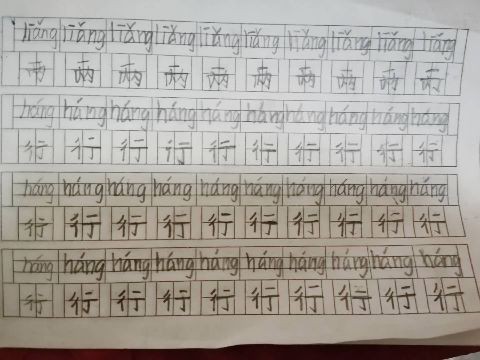 liǎng liǎng liǎng liǎng liǎng liǎng liǎng liǎng liǎng liǎng
两 两 两 两 两 两 两 两 两 两
háng háng háng háng háng háng háng háng háng háng
行 行 行 行 行 行 行 行 行 行
háng háng háng háng háng háng háng háng háng háng
行 行 行 行 行 行 行 行 行 行
háng háng háng háng háng háng háng háng háng háng
行 行 行 行 行 行 行 行 行 行